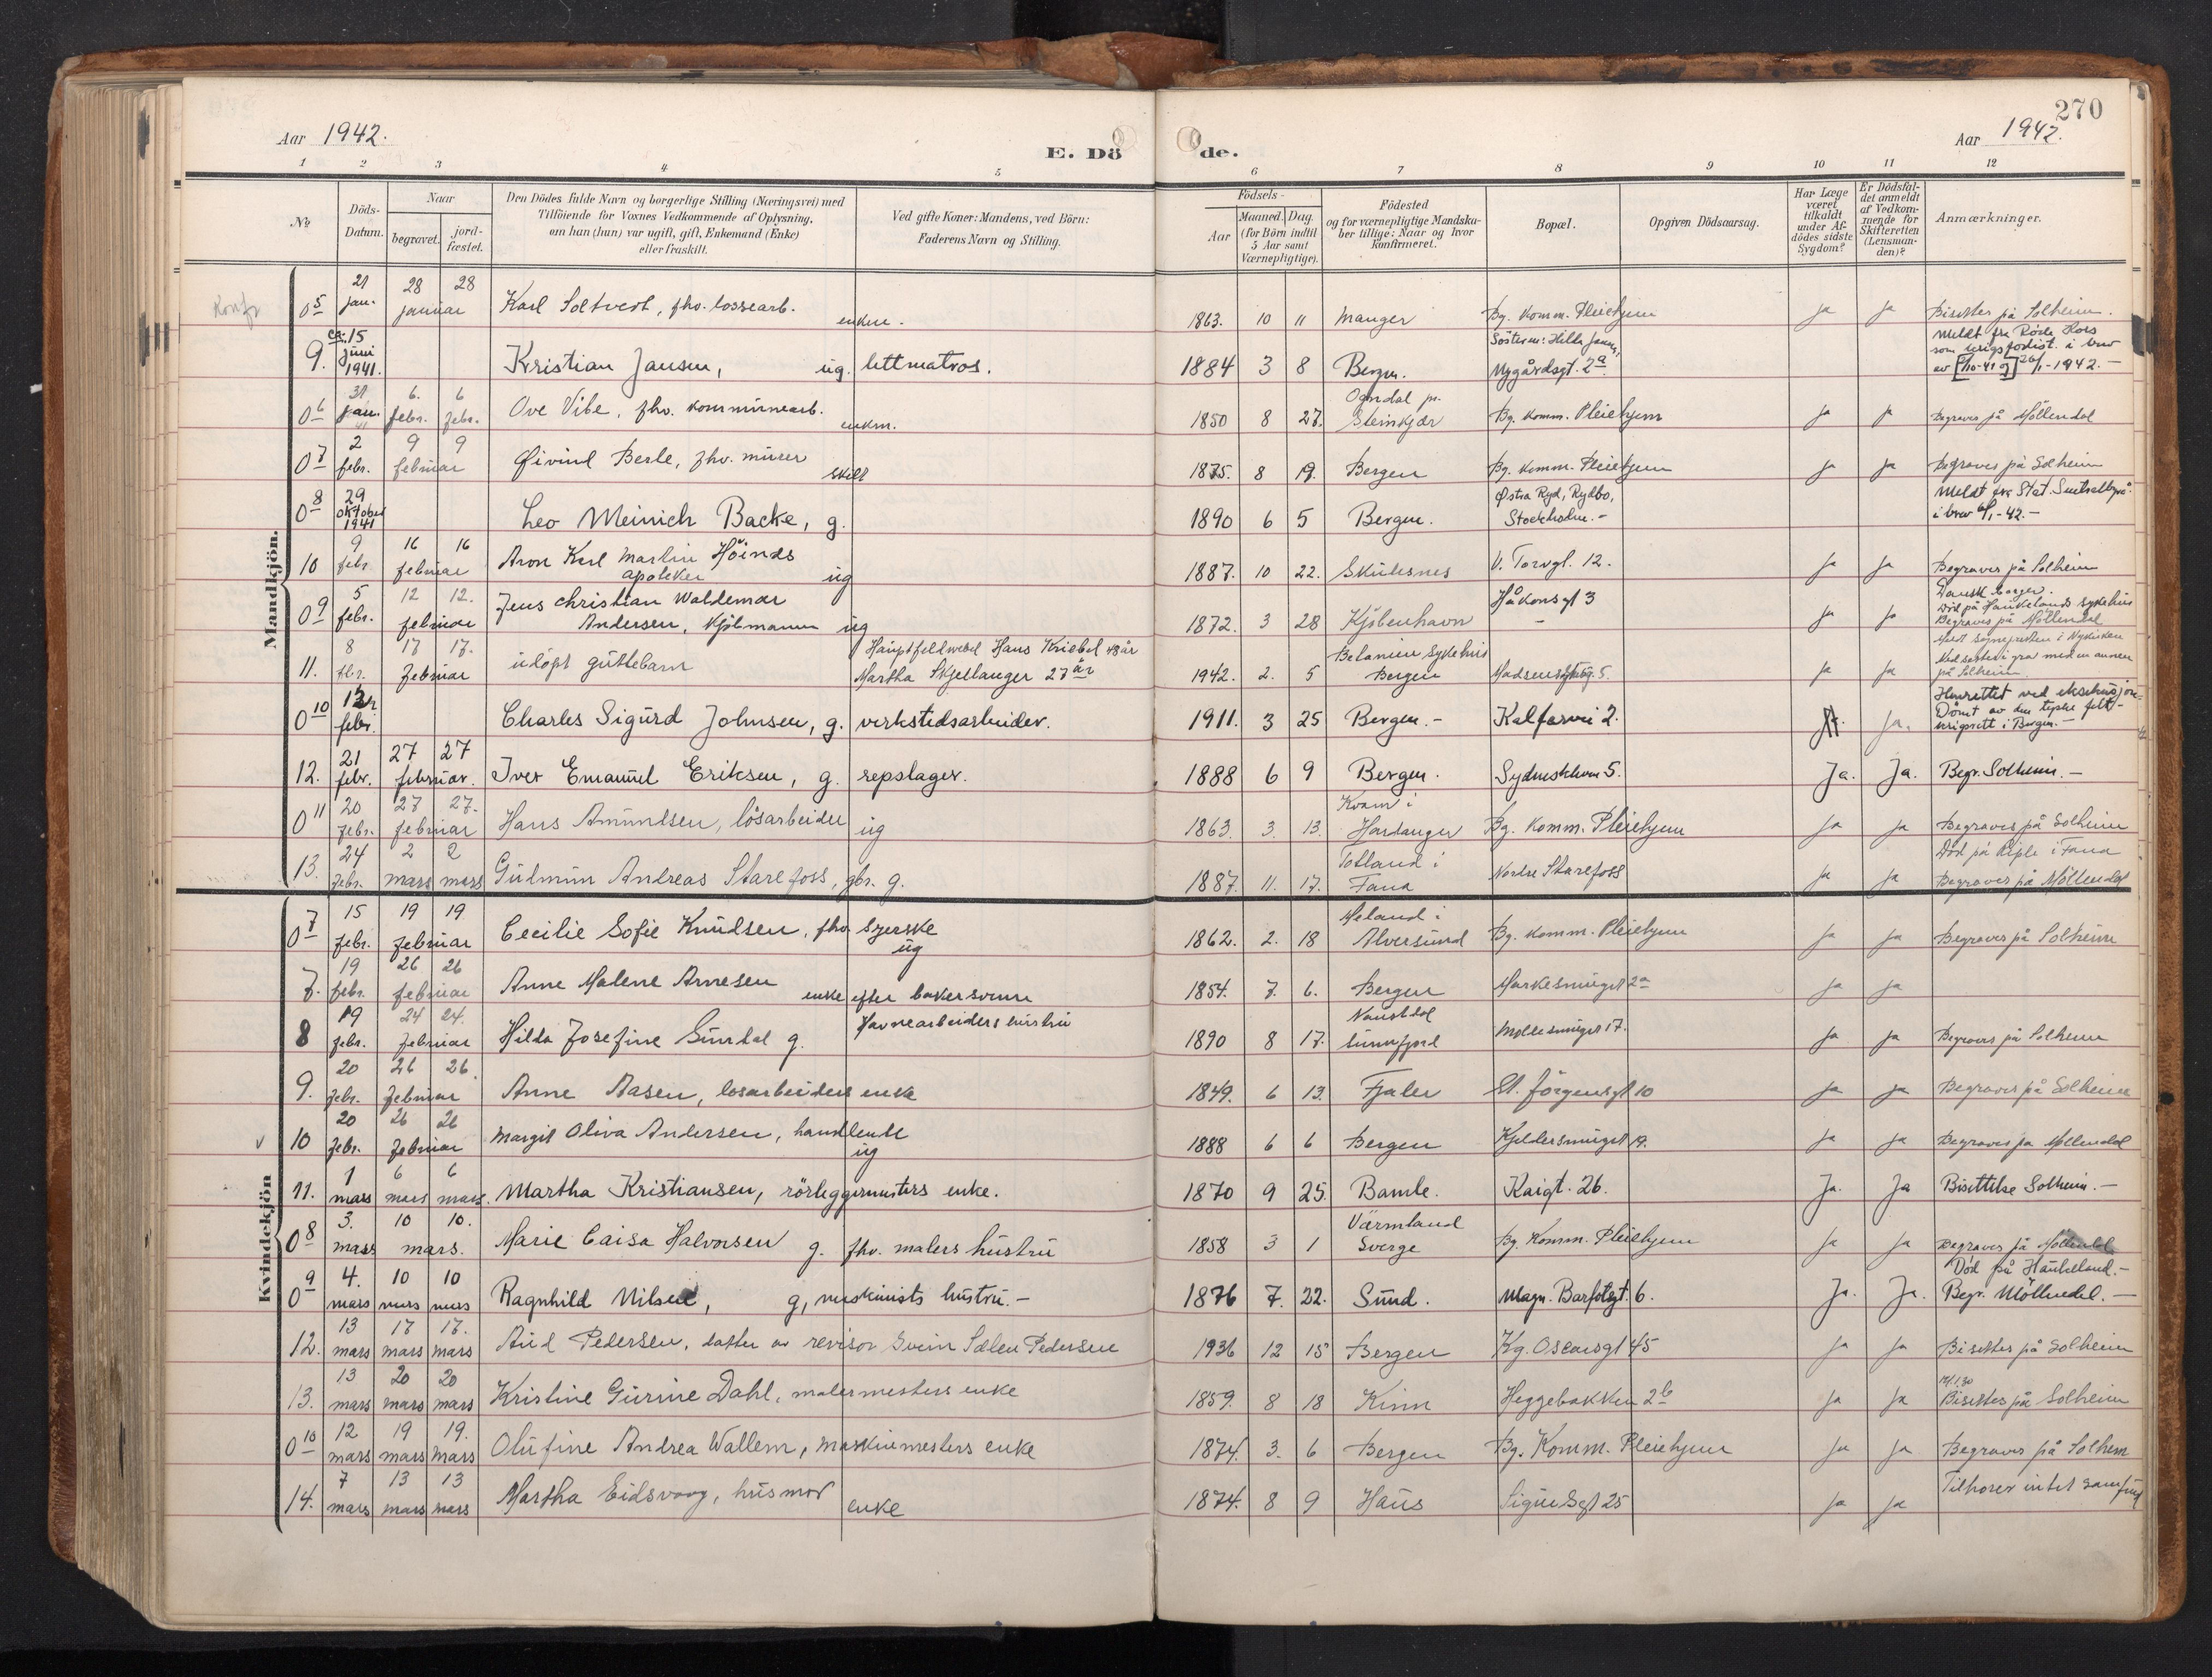 270
Aar 1942.
Aar 1942.
E. Dö
de.
1 2 3 4 5 6 7 8 9 10 11 12
No
Döds-
Datum.
Naar
begravet.
jord-
fæstet.
Den Dödes fulde Navn og borgerlige Stilling (Næringsvei) med
Tilföiende for Voxnes Vedkommende af Oplysning,
om han (hun) var ugift, gift, Enkemand (Enke)
eller fraskilt.
Ved gifte Koner: Mandens, ved Börn:
Faderens Navn og Stilling.
Födsels-
Aar
Maaned. Dag.
(for Börn indtil
5 Aar samt
Værnepligtige).
Födested
og for værnepligtige Mandska-
ber tillige: Naar og hvor
konfirmeret.
Bopæl.
Opgiven Dödsaarsag.
Har Læge
været
tilkaldt
under Af-
dödes sidste
Sygdom?
Er Dödsfal-
det anmeldt
af Vedkom-
mende for
Skifteretten
(Lensman-
den)?
Anmærkninger.
Mandkjön.
05 21 jan. 28 28 januar Karl Soltvedt, fhv. lossearb. enkem. 1863. 10 11 Manger Bg. Komm. Pleiehjem ja ja Bisettes på Solheim.
9. ca. 15 juni 1941. Kristian Jansen, ug. lettmatros. 1884 3 8 Bergen. Nygårdsgt. 2a
Meldt fra Røde Kors
06 31 jan. 6. febr. 6 febr. Ove Vibe, fhv. kommunearb. enkm. 1850 8 27. Ogndal pr. Steinkjær Bg. Komm. Pleiehjem ja ja Begraves på Möllendal
07 2 febr. 9 9 februar Øivind Berle, fhv. murer skilt 1875. 8 19. Bergen Bg. Komm. Pleiehjem ja ja Begraves på Solheim
08 29 oktober 1941 Leo Meinich Backe, g. 1890 6 5 Bergen. Østra Ryd, Rydbo, Stockholm.-
Meldt fra Stat. Sentralbyrå i brev 6/1-42.-
10 9 febr. 16 16 februar Aron Karl Martin Höines apoteker ug 1887. 10 22. Skudesnes V. Torvgt. 12. ja ja Begraves på Solheim
09 5 febr. 12 12. februar Jens Christian Waldemar Andersen, kjöbmann ug 1872. 3 28 Kjöbenhavn Håkonsgt 3 ja ja Dansk borger.
Död på Haukelands sykehus
Begraves på Möllendal
11. 8 fbr. 17 17. februar udöpt guttebarn Hauptfeldwebel Hans Kriebel 48 år
Martha Skjellanger 27 år 1942. 2. 5 Betanien sykehus Bergen ja ja
Nedsettes i grav med en annen på Solheim
010 12 febr. Charles Sigurd Johnsen, g. verkstedsarbeider. 1911. 3 25 Bergen.- Kalfarvei 2. ja.
Henrettet ved eksekusjon-
Dömt av den tyske felt-
krigsrett i Bergen.-
12. 21 febr. 27 27 februar. Iver Emanuel Eriksen, g. repslager. 1888 6 9 Bergen. Sydneskleven 5. Ja. Ja. Begr. Solheim.-
011 20 febr. 27 27. februar Hans Amundsen, lösarbeider ug 1863. 3. 13. Kvam i Hardanger Bg. Komm. Pleiehjem ja ja Begraves på Solheim
13. 24 febr. 2 mars 2 mars Gudmun Andreas Starefoss, gbr. g. 1887. 11. 17. Totland i Fana Nordre Starefoss ja ja Död på Riple i Fana
Begraves på Möllendal
Kvindekjön
07 15 febr. 19 19 februar Cecilie Sofie Knudsen, fhv. syerske ug 1862. 2. 18 Meland i Alversund Bg. Komm. Pleiehjem ja ja Begraves på Solheim
7. 19 febr. 26 26 februar Anne Malene Arnesen enke efter bakersvenn 1854. 7. 6. Bergen Markesmuget 2a ja ja
8 19 febr. 24 24. februar Hilda Josefine Sundal g. Havnearbeiders hustru 1890 8 17. Naustdal Sunnfjord Mollesmuget 17. ja ja Begraves på Solheim
9. 20 febr. 26 26. februar Anne Aasen, losarbeiders enke 1849. 6 13. Fjaler St. Jörgensgt 10 ja ja Begraves på Solheim
10 20 febr. 26 26 februar Margit Oliva Andersen, handlende ug 1888 6 6 Bergen Kjeldersmuget 19. ja ja Begraves på Möllendal
11. 1 mars 6 mars 6 mars. Martha Kristiansen, rörleggermesters enke. 1870 9 25. Bamle. Kaigt. 26. Ja. Ja Bisettelse Solheim.-
08 3. mars 10 10. mars. Marie Caisa Halvorsen g. fhv. malers hustru 1858 3 1 Värmland Sverge Bg. Komm. Pleiehjem ja ja Begraves på Möllendal
09 4. mars 10 mars 10 mars Ragnhild Nilsen, g, maskinists hustru.- 1876 7. 22. Sund. Magn. Barfotsgt. 6. Ja. Ja. Död på Haukeland.-
Begr. Möllendal.-
12. 13 mars 17 mars 17. mars Aud Pedersen, datter av revisor Svein Sælen Pedersen 1936 12 15 Bergen Kg. Oscarsgt 45 ja ja Bisettes på Solheim
13. 13 mars 20 mars 20 mars Kristine Gurine Dahl, malermesters enke 1859. 8 18 Kinn Heggebakken 2b ja ja Bisettes på Solheim
010 12 mars 19 mars 19. mars Olufine Andrea Wallem, maskinmesters enke 1874. 3. 6 Bergen Bg. Komm. Pleiehjem ja ja Begraves på Solheim
14. 7 mars 13 mars 13 mars Martha Eidsvaag, husmor enke 1874. 8 9 Haus Sigurdsgt 25 ja ja Tilhorer intet samfund